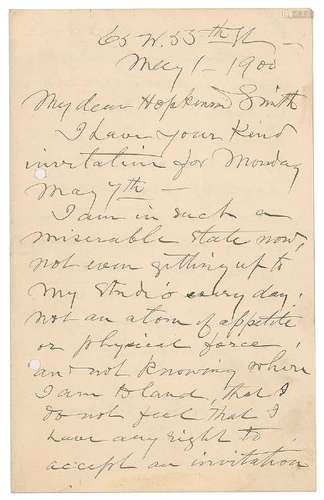 65 W. 55th St —
May 1 - 1900
My dear Hopkinson Smith
I have your kind
invitation for Monday
May 7th —
I am in such a
miserable state now,
not even getting up to
my studio every day,
not an atom of appetite
or physical force,
and not knowing where
I am that I
do not feel that I
have any right to
accept an invitation